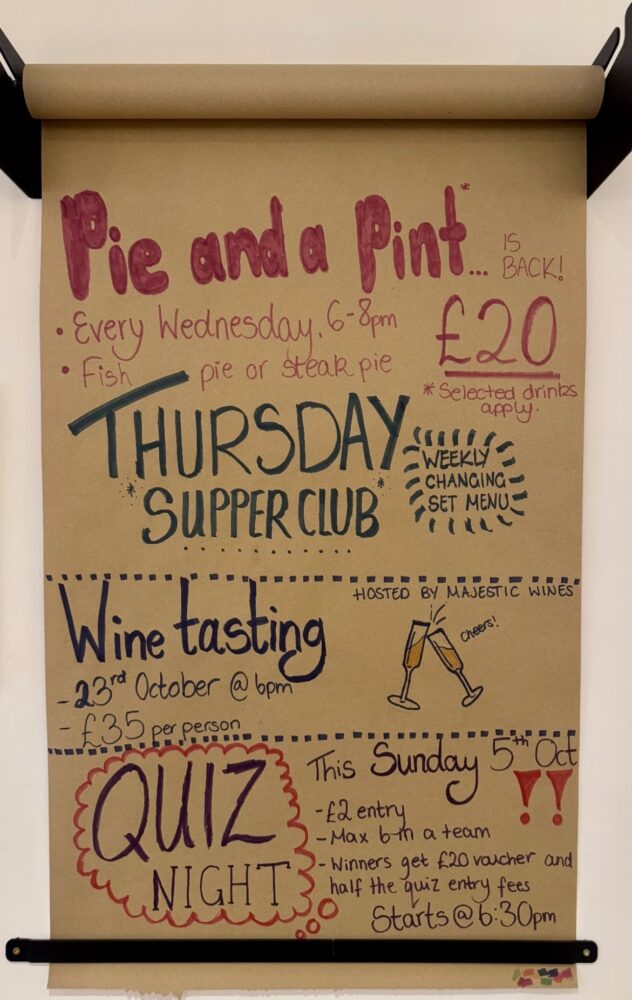 Pie and a Pint*... IS BACK!
• Every Wednesday, 6-8pm
• Fish pie or steak pie
£20
* Selected drinks
apply.
THURSDAY
*SUPPER CLUB*
WEEKLY
CHANGING
SET MENU
HOSTED BY MAJESTIC WINES
Wine tasting
Cheers!
- 23rd October @ 6pm
- £35 per person
QUIZ
NIGHT
This Sunday 5th Oct
!!
- £2 entry
- Max 6 in a team
- Winners get £20 voucher and
half the quiz entry fees
Starts @ 6:30pm